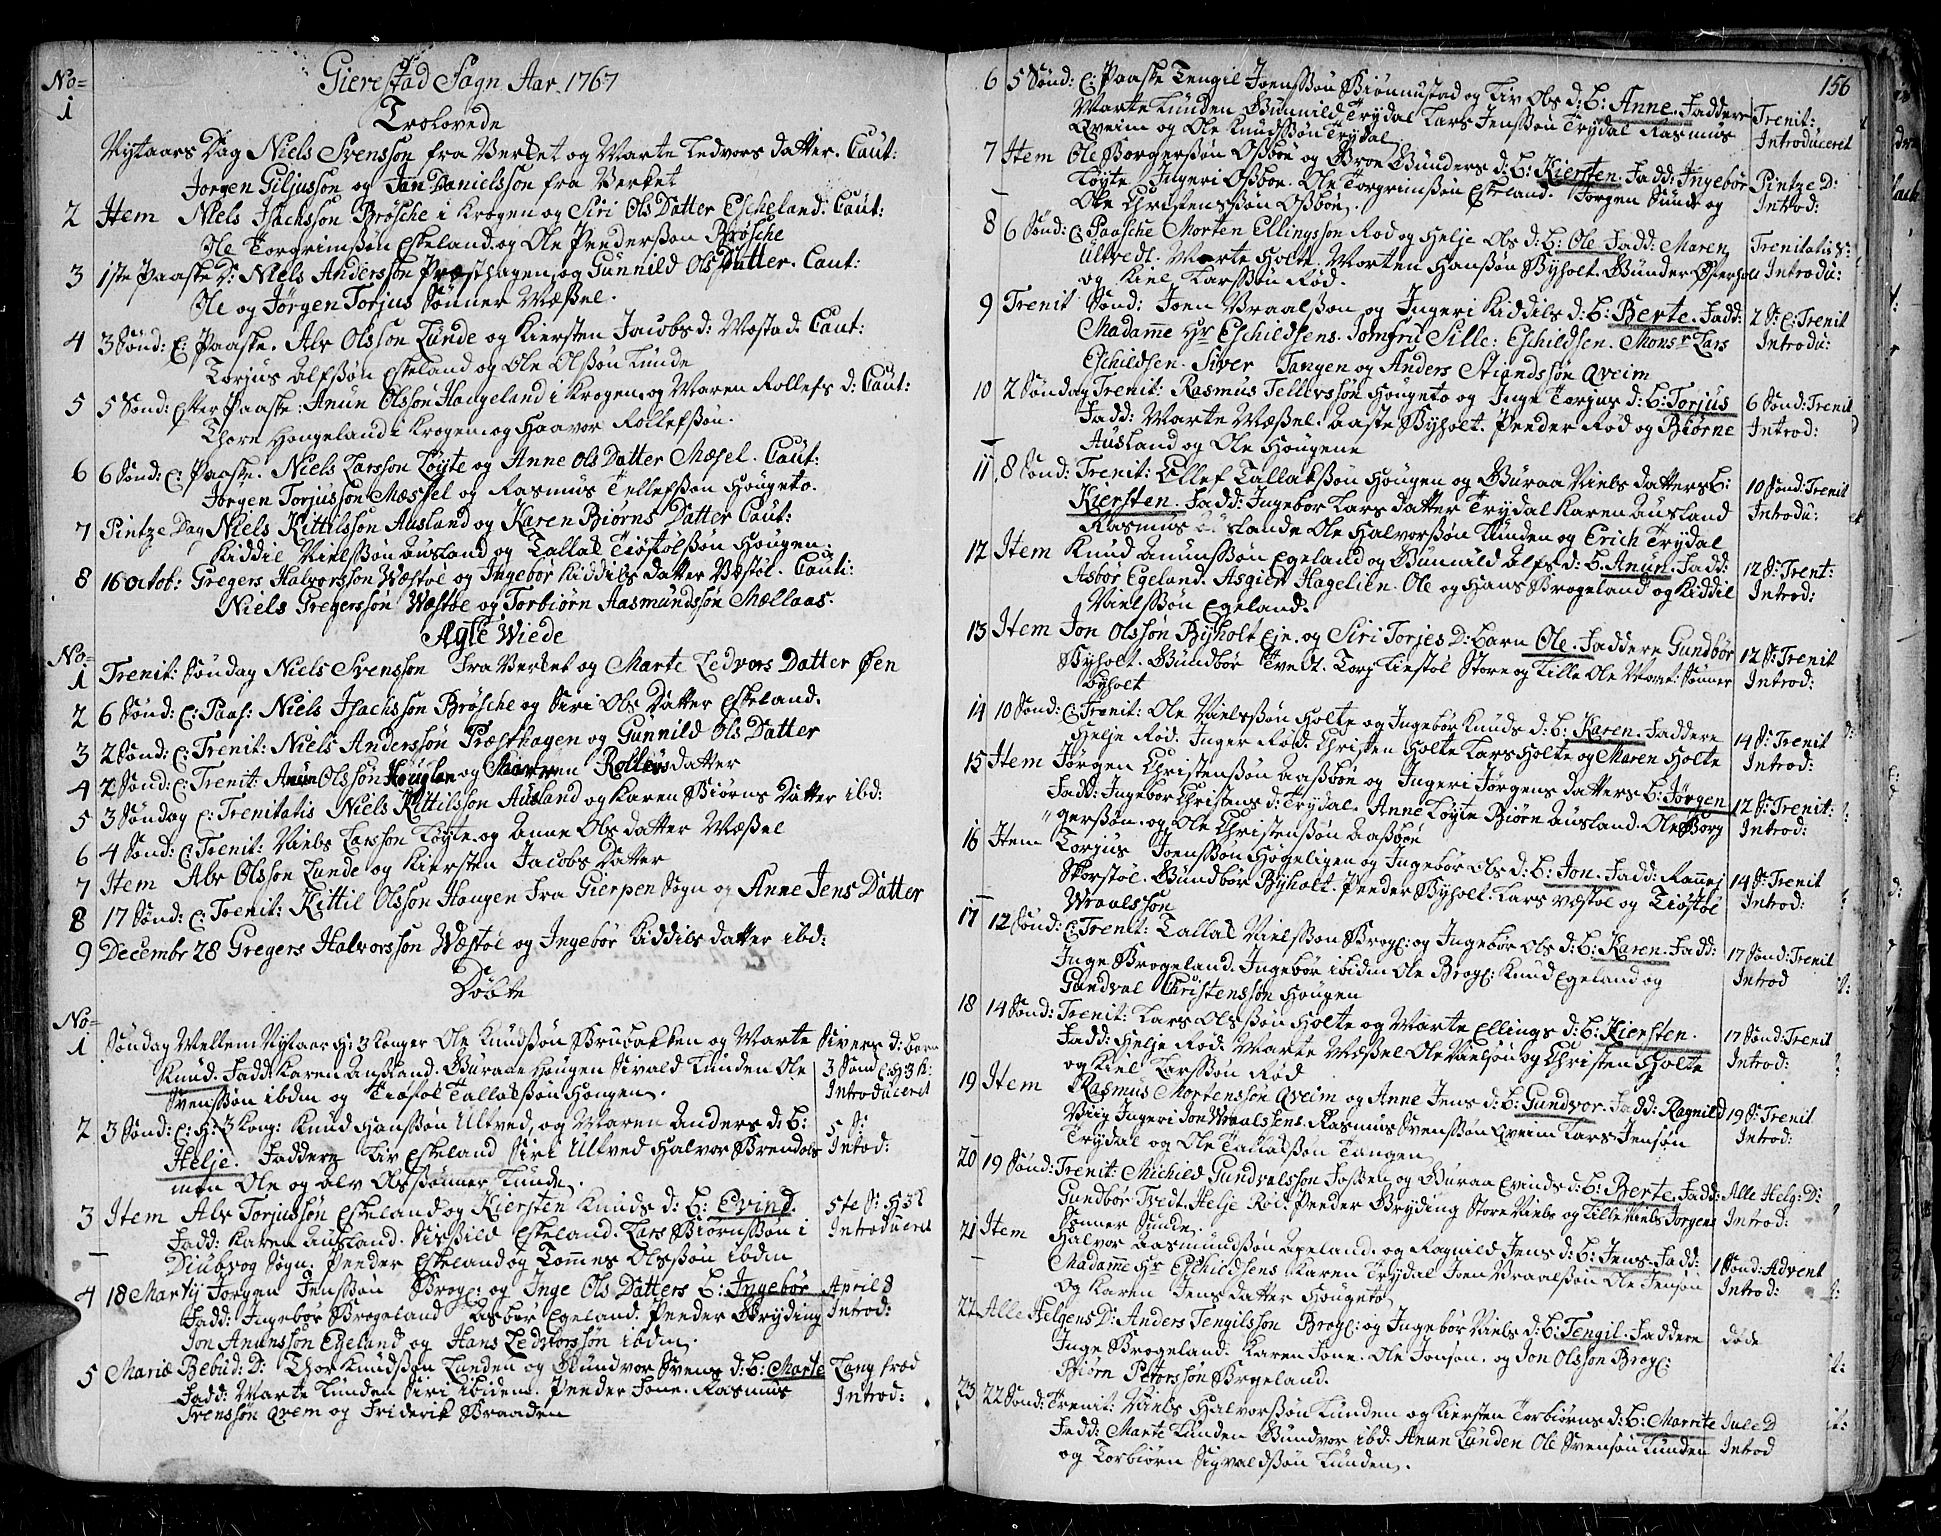 Gierestad Sogn Aar 1767
No=
1
Trolovede
Nytaars Dag Niels Svensson fra Verket og Marte Ledvors datter. Caut:
Jorgen Giljusson og Jan Danielsson fra Verket
2 Item Niels Isachsson Brøsche i Krogen og Siri Ols Datter Escheland. Caut:
Ole Torgrimssøn Eskeland og Ole Peedersson Brøsche
3 1ste Paaske D: Niels Andersson Præsthagen og Gunnild Ols Datter. Caut:
Ole og Jørgen Torjus Sønner Mæsel.
4 3 Sønd: E: Paaske. Alv Olsson Lunde og Kiersten Jacobs d: Mostad. Caut:
Torjus Alfssøn Eskeland og Ole Olssøn Lunde
5 5 Sønd: Efter Paaske: Anun Olsson Haugeland i Krogen og Maren Rollefs d: Caut:
Thore Hougeland i Krogen og Haavor Rollefssøn.
6 6 Sønd: E: Paaske. Niels Larsson Løyte og Anne Ols Datter Mæsel. Caut:
Jørgen Torjusson Mæssel og Rasmus Tellefssøn Hougeto.
7 Pintze Dag Niels Kittilsson Ausland og Karen Biørns Datter Caut:
Kiddil Nielssøn Ausland og Tallac Tiøstolssøn Hougen.
8 16 Octob: Gregers Halvorsson Wæstøl og Ingebør Kiddils datter Væstøl. Caut:
Niels Gregerssøn Wæstøe og Torbiørn Aasmundssøn Mællaas.
Ægte Wiede
No=
1 Trenit: Søndag Niels Svensson fra Verket og Marte Ledvors Datter Øen
2 6 Sønd: E: Paas: Niels Isachsson Brøsche og Siri Ols Datter Eskeland.
3 2 Sønd: E: Trenit: Niels Anderssøn Præsthagen og Gunnild Ols Datter
4 2 Sønd: E: Trenit: Anun Olsson Hougland og Maren Rollevs datter
5 3 Søndag E: Trenitatis Niels Kittilsson Ausland og Karen Biørns Datter ibd:
6 4 Sønd: E: Trenit: Niels Larsson Løyte og Anne Ols datter Mæsel
7 Item Alv Olsson Lunde og Kiersten Jacobs Datter
8 17 Sønd: E: Trenit: Kittil Olsson Haugen fra Gierpen Sogn og Anne Jens Datter
9 Decembr 28 Gregers Halvorsson Wæstøl og Ingebør Kiddils datter ibd:
Døbte
No=
1 Søndag Mellem Nytaar H: 3 Konger Ole Knudssøn Brubakken og Marte Sivers d: barn
Knud. Fadd: Karen Ausland. Buraae Hougen Sivald Lunden Ole
Svenssøn ibdm og Tiøstol Tallacssøn Hougen.
3 Sønd: E: H: 3 K:
Introduceret
2 3 Sønd: E: H: 3 Kong: Knud Hanssøn Ultved, og Maren Anders d: B:
Helje. Faddere Liv Eskeland Siri Ultved Halvor Brendals
moen Ole og Alv Olssønner Lunde.
5 S:
Introd:
3 Item Alv Torjussøn Eskeland og Kiersten Knuds d: B: Evind.
Fadd: Karen Ausland. Sirsild Eskeland. Lars Biørnssøn i
Diubvog Sogn. Peeder Eskeland og Tommes Olssøn ibdm
5te S: H 3 K
Introduceret
4 18 Martij Jorgen Jenssøn Brog: og Inge Ols Datters B: Ingebør
Fadd: Ingebør Brogeland Asbør Egeland. Peeder Bryding
Jon Anunsson Egeland og Hans Ledvorssøn ibdm.
April 8
Introd:
5 Mariæ Bebud: D: Thor Knudssøn Lunden og Gundvor Svens d: B: Marte
Fadd: Marte Lunden Siri ibidem. Peeder Fone. Rasmus
Svenssøn Qvem og Friderik Braaden
Lang fred
Introd:
156
6 5 Sønd: E: Paaske Tengil Joenssøn Biønnustad og Liv Ols d: B: Anne. Faddere
Marte Lunden Gunnild Trydal Lars Jenssøn Trydal Rasmus
Qveim og Ole Knudssøn Trydal
Trenit:
Introduceret
7 Item Ole Borgerssøn Ossbøe og Broe Gunders d: B: Kiersten. Fadd: Ingebør
Løyte. Ingeri Ossboe. Ole Torgrimssøn Eskeland. Jorgen Sunde og
Ole Christenssøn Ossbøe.
Pintze D:
Introd:
8 6 Sønd: E: Paasche Morten Ellingssøn Rød og Helje Ols d: B: Ole Fadd: Maren
Ultvedt. Marte Holte. Morten Hanssøn Byholt. Gunder Østerholt
og Kiel Larssøn Rød.
Trenitatis S:
Introdu:
9 Trenit Sønd: Joen Vraalssøn og Ingeri Kiddils d: B: Berte. Fadd:
Madame Hr Eschildsens. Jomfru Sille: Eschildsen. Monsr Lars
Eschildsen. Siver Tangen og Anders Stiandssøn Qveim
2 S: E: Trenit
Introdu:
10 2 Søndag Trenit: Rasmus Tellevssøn Hougeto og Inge Torgus d: B: Torjus
Fadd: Marte Mæsel. Aaste Byholt. Peeder Rød og Biørne
Ausland og Ole Hougene
6 Sønd: Trenit
Introd:
11 8 Sønd: Trenit: Ellef Tallakssøn Hougen og Buraa Niels datters B:
Kiersten. Fadd: Ingebor Lars datter Trydal Karen Ausland
Rasmus Auslande Ole Halvorssøn Lunden og Erich Trydal
10 Sønd: Trenit
Introdu:
12 Item Knud Anunssøn Egeland og Gunnild Alfs d: B. Anun. Fadd:
Asbør Egeland. Asgier Hagelien. Ole og Hans Brogeland og Kiddil
Nielssøn Egeland.
12 S: Trent:
Introd:
13 Item Jon Olssøn Byholt Eie. og Siri Torjes D: Barn Ole. Faddere Gundbør
Byholt. Gundbør Tvedt. Torg Liestøl Store og Lille Ole Mort: Sønner
Byholt
12 S: Trenit
Introd:
14 10 Sønd: E: Trenit: Ole Nielssøn Holte og Ingebør Knuds d: B: Karen. Faddere
Helje Rød. Inger Rød. Christen Holte Lars Holte og Maren Holte
14 S: Trenit
Introd:
15 Item Jørgen Christenssøn Aasbøe og Ingeri Jørgens datters B: Jørgen
Fadd: Ingebor Christens d: Trydal. Anne Løyte Biørn Ausland. Ole Borg
gerssøn. og Ole Christenssøn Aasbøe
12 S: Trenit:
Introd:
16 Item Torjus Joenssøn Høgeligen og Ingebør Ols d: B: Jon. Fadd: Ranej
Skorstøl. Gundbør Byholt. Peeder Byholt. Lars Væstøl og Tiøstøl
Wraalsson
14 S: Trenit
Introd:
17 12 Sønd: E: Trenit: Tallac Nielssøn Brog: og Ingebør Ols d: B: Karen. Fadd:
Inge Brogeland. Ingebør ibidm Ole Brog: Knud Egeland og
Gundval Christenssøn Hougen
17 Sønd: Trenit
Introd
18 14 Sønd: Trenit: Lars Olssøn Holte og Marte Ellings d: B: Kiersten.
Fadd: Helje Rød. Marte Mæsel Ole Nielsøn og Christen Holte
og Kiel Larssøn Rød
17 Sønd: Trenit
Introd:
19 Item Rasmus Mortenssøn Qveim og Anne Jens d: B: Gundvor. Fadd: Ragnild
Viig Ingeri Jon Wraalsens. Rasmus Svenssøn Qveim Lars Jensøn
Trydal og Ole Tallacssøn Tangen
19 S: Trenit
Introd:
20 19 Sønd: Trenit: Michild Gundvalsson Fossen og Buraa Evinds d: B: Berte. Fadd:
Gundbor Tvedt. Helje Rød. Peeder Bryding Store Niels og Lille Niels Jorgens
Sønner Sunde.
Alle Helg: D:
Introd:
21 Item Halvor Aasmundssøn Apeland. og Ragnild Jens d: B: Jens. Fadd:
Madame Hr Eschildsens Karen Trydal Joen Vraalssøn Ole Jensøn
Og Karen Jens datter Hougeto
1 Sønd: Advent
Introd:
22 Alle Helgens D: Anders Tengilsson Brog: og Ingebør Niels d: B: Tengil. Faddere
Inge Brogeland. Karen Fone. Ole Jonson. og Jon Olsson Brog:
Biørn Petersson Brgeland.
døde
23 22 Sønd: Trenit: Niels Halvorssøn Lunden og Kiersten Torbiørns d: B: Marrite
Fadd: Marte Lunden Gundvor ibd: Anun Lunden Ole Svensøn Lunden
og Torbiørn Sigvaldssøn Lunden.
Jule D
Introd